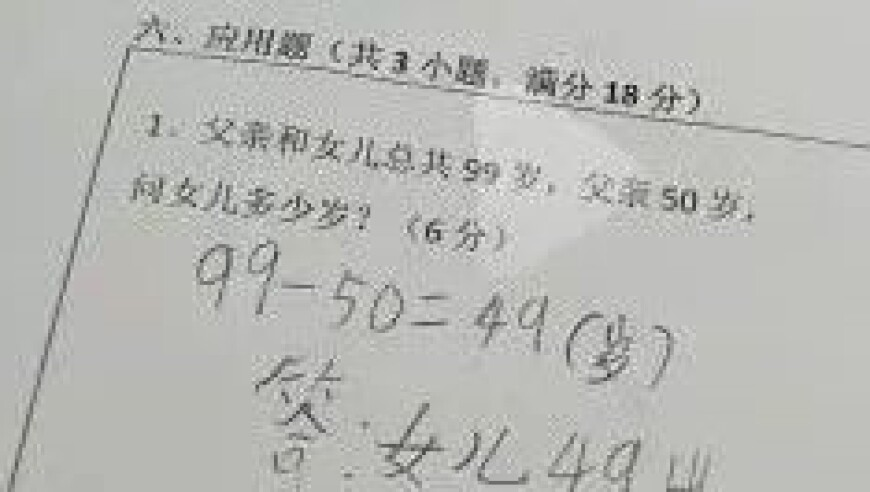 六、应用题（共3小题，满分18分）
1. 父亲和女儿总共99岁，父亲50岁，
问女儿多少岁？（6分）
99-50=49(岁)
答:女儿49